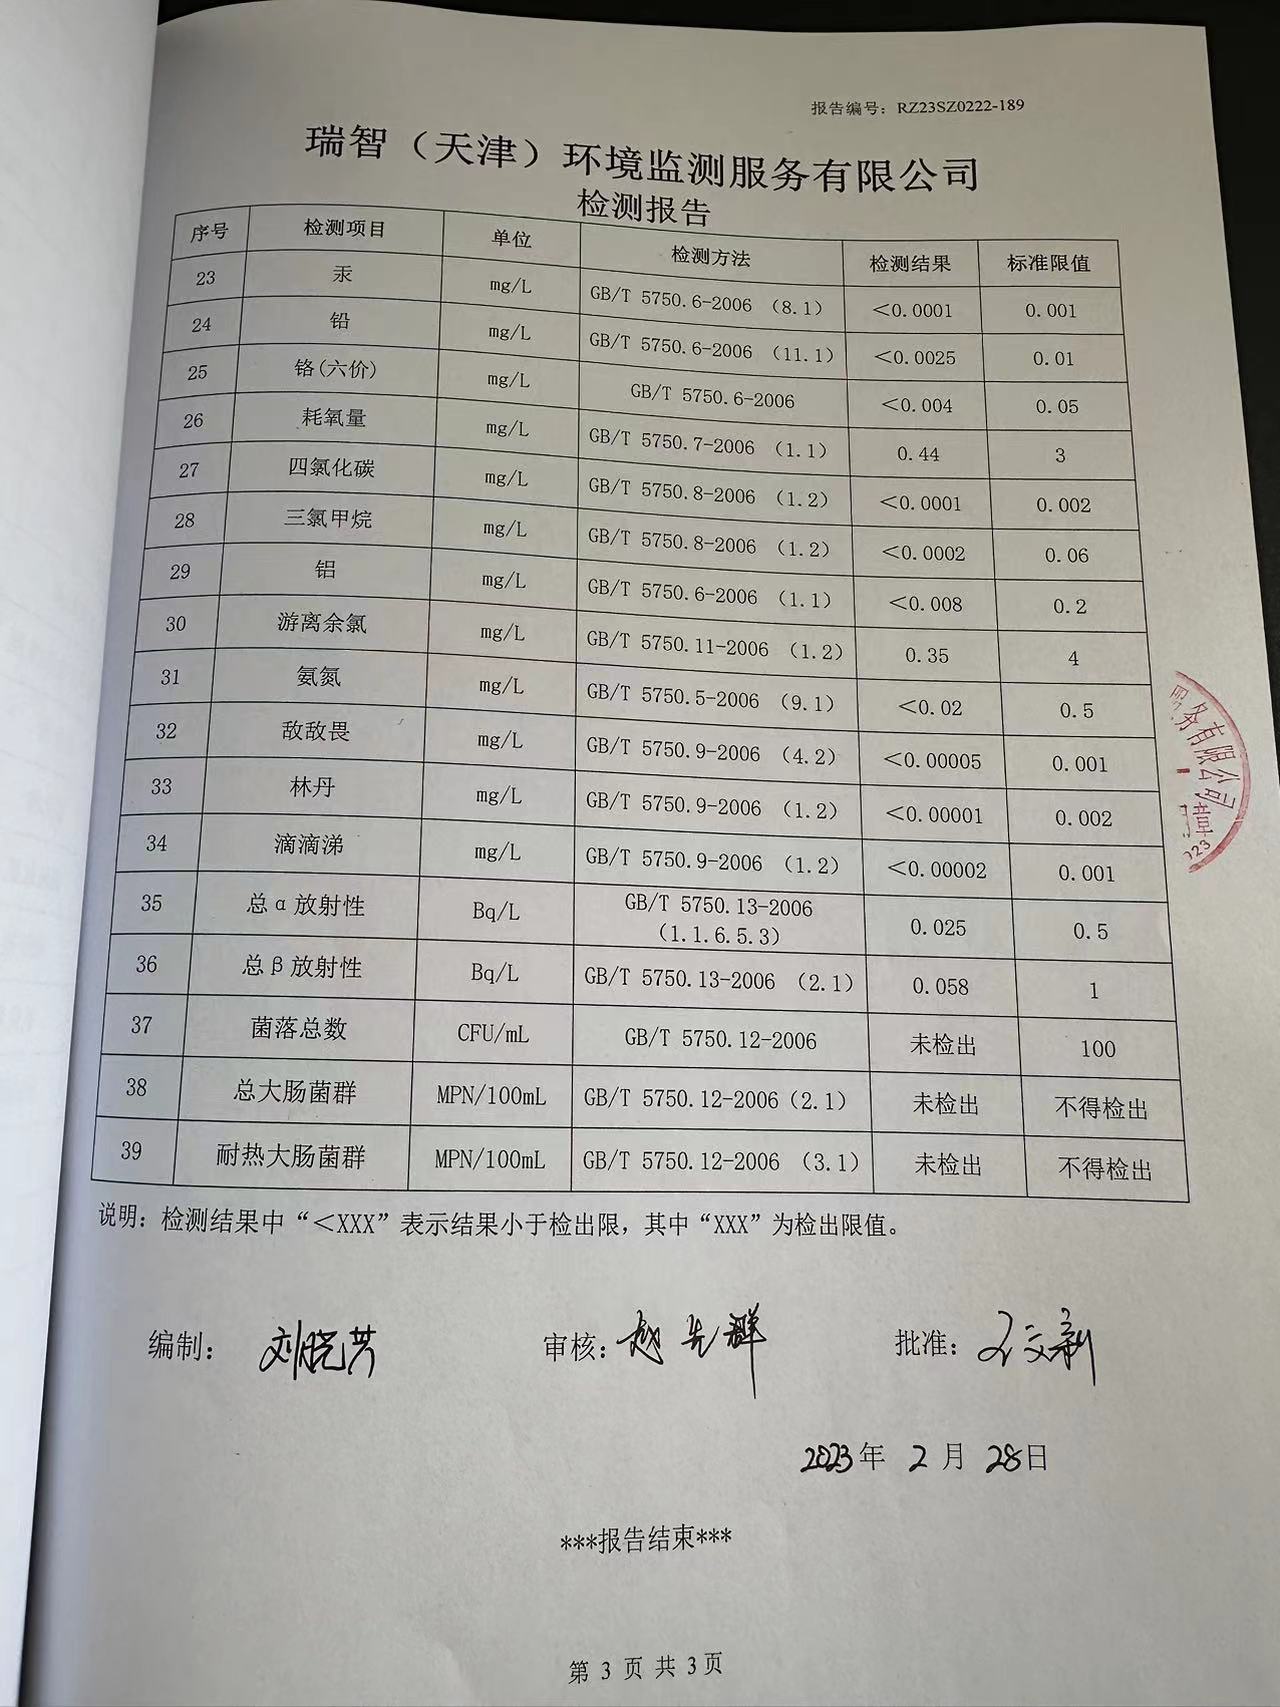 报告编号：RZ23SZ0222-189
瑞智（天津）环境监测服务有限公司
检测报告
序号 检测项目 单位 检测方法 检测结果 标准限值
23 汞 mg/L GB/T 5750.6-2006 （8.1） <0.0001 0.001
24 铅 mg/L GB/T 5750.6-2006 （11.1） <0.0025 0.01
25 铬(六价) mg/L GB/T 5750.6-2006 <0.004 0.05
26 耗氧量 mg/L GB/T 5750.7-2006 （1.1） 0.44 3
27 四氯化碳 mg/L GB/T 5750.8-2006 （1.2） <0.0001 0.002
28 三氯甲烷 mg/L GB/T 5750.8-2006 （1.2） <0.0002 0.06
29 铝 mg/L GB/T 5750.6-2006 （1.1） <0.008 0.2
30 游离余氯 mg/L GB/T 5750.11-2006 （1.2） 0.35 4
31 氨氮 mg/L GB/T 5750.5-2006 （9.1） <0.02 0.5
32 敌敌畏 mg/L GB/T 5750.9-2006 （4.2） <0.00005 0.001
33 林丹 mg/L GB/T 5750.9-2006 （1.2） <0.00001 0.002
34 滴滴涕 mg/L GB/T 5750.9-2006 （1.2） <0.00002 0.001
35 总α放射性 Bq/L GB/T 5750.13-2006 （1.1.6.5.3） 0.025 0.5
36 总β放射性 Bq/L GB/T 5750.13-2006 （2.1） 0.058 1
37 菌落总数 CFU/mL GB/T 5750.12-2006 未检出 100
38 总大肠菌群 MPN/100mL GB/T 5750.12-2006（2.1） 未检出 不得检出
39 耐热大肠菌群 MPN/100mL GB/T 5750.12-2006 （3.1） 未检出 不得检出
说明：检测结果中“＜XXX”表示结果小于检出限，其中“XXX”为检出限值。
编制：刘晓芳 审核：赵先群 批准：王文新
2023年 2 月 28日
***报告结束***
第 3 页 共 3 页
务有限公司
章
023